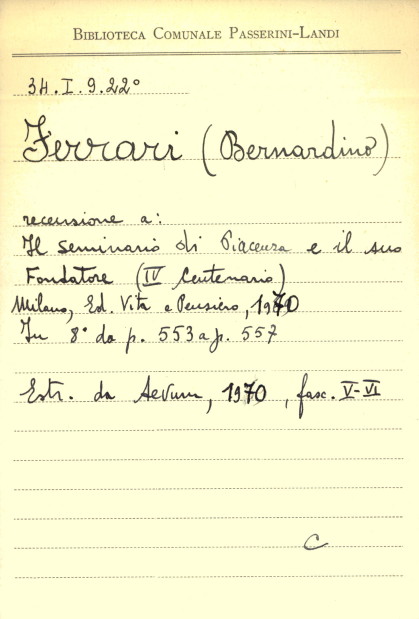 BIBLIOTECA COMUNALE PASSERINI-LANDI
34.I.9.22°
Ferrari (Bernardino)
recensione a:
Il seminario di Piacenza e il suo
Fondatore (IV Centenario)
Milano, Ed. Vita e Pensiero, 1970
In 8° da p. 553 a p. 557
Estr. da Aevum, 1970, fasc. V-VI
C